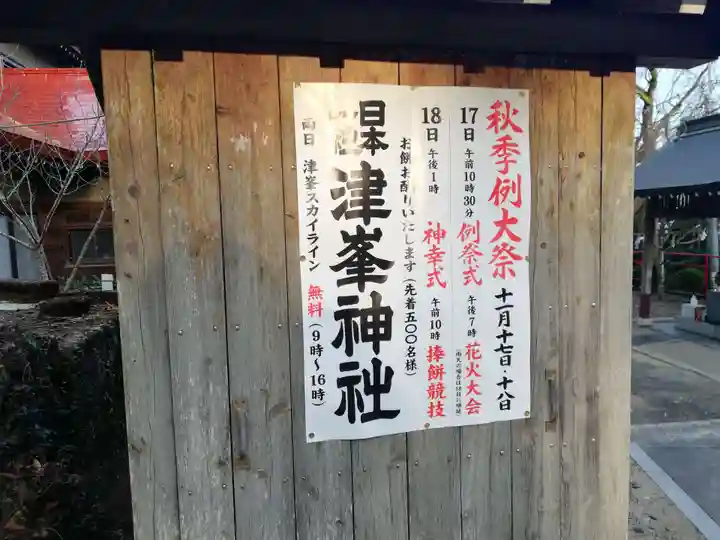 秋季例大祭 十一月十七日・十八日
17日 午前10時30分 例祭式 午後7時 花火大会
18日 午後1時 神幸式 午前10時 捧餅競技
お餅お配りいたします(先着五〇〇名様)
日本
津峯神社
両日 津峯スカイライン 無料(9時〜16時)